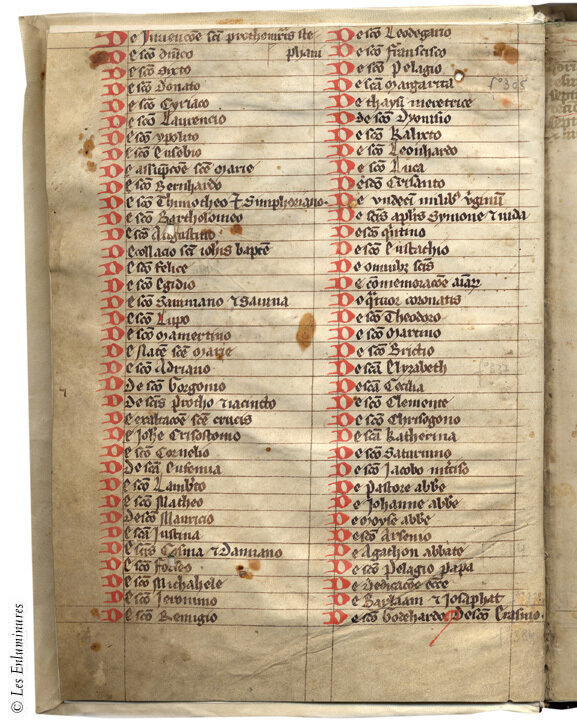 De Invencōe scī prothom̄ris ste
phani
De scō dn̄ico
De scō Sixto
De scō Donato
De scō Cyriaco
De scō Laurencio
De scō ypolito
De scō Eusebio
De assūpcōe scē marie
De scō Bernhardo
De scō Thimotheo ⁊ Simphoriano
De scō Bartholomeo
De scō Augustino
Decollacio scī ioh̄is bapt̄e
De scō felice
De scō Egidio
De scō Sauiniano ⁊ Sauina
De scō Lupo
De scō mamertino
De natī scē marie
De scō Adriano
De scō Gorgonio
De scīs Protho ⁊ iacincto
De exaltacōe scē crucis
De Joh̄e Crisostomo
De scō Cornelio
De scā Eufemia
De scō Lamb̄to
De scō Matheo
De scō Mauricio
De scā Justina
De scīs Cosma ⁊ Damiano
De scō
De scō Michahele
De scō Jeronimo
De scō Remigio
De scō Leodegario
De scō francisco
De scō Pelagio
De scā margarita
De thaysi meretrice
De scō Dyonisio
De scō Kalixto
De scō Leonhardo
De scō Luca
De scō Crisanto
De vndecī milib᷒ v̄ginū
De scīs aplīs Symone ⁊ iuda
De scō q̄ntino
De scō Eustachio
De omnibꝫ scīs
De cōmemoracōe aīarꝫ
De q̄tuor coronatis
De scō Theodoro
De scō Martino
De scō Brictio
De scā Elyzabeth
De scā Cecilia
De scō Clemente
De scō Chrisogono
De scā Katherina
De scō Saturnino
De scō Jacobo inciso
De Pastore abb̄e
De Johanne abb̄e
De moyse abb̄e
De scō Arsenio
De Agathon abbate
De scō Pelagio papa
De dedicacōe ecc̄e
De Barlaam ⁊ Josaphat
De scō Godehardo De scō Erasmo
© Les Enluminures